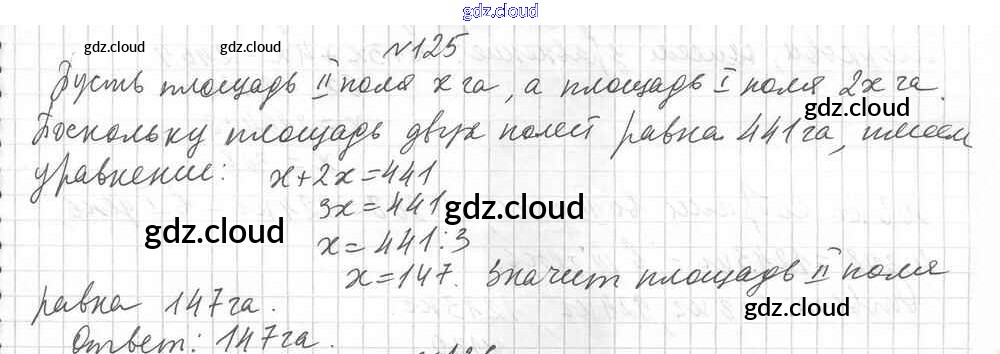 gdz.cloud
gdz.cloud gdz.cloud №125
Пусть площадь II поля x га, а площадь I поля 2x га.
gdz.cloud
Поскольку площадь двух полей равна 441 га, имеем
уравнение: x+2x=441
3x=441
gdz.cloud
gdz.cloud
x=441:3
x=147. Значит площадь II поля
равна 147 га.
gdz.cloud
Ответ: 147 га.
gdz.cloud